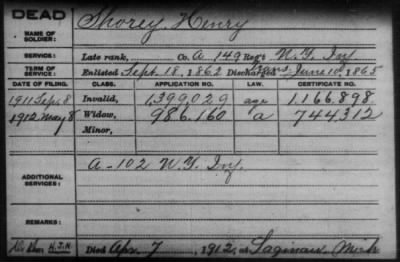 DEAD
NAME OF SOLDIER: Shorey, Henry
SERVICE: Late rank, Co. A 149 Reg't N.Y. Inf.
TERM OF SERVICE: Enlisted Sept. 18, 1862 Discharged Trans. June 10, 1865
DATE OF FILING. CLASS. APPLICATION NO. LAW. CERTIFICATE NO.
1911 Sep. 8 Invalid, 1399029 age 1.166.898
1912 May 8 Widow, 986.160 a 744312
Minor,
ADDITIONAL SERVICES: A-102 N.Y. Inf.
REMARKS:
Died Apr. 7, 1912, at Saginaw, Mich